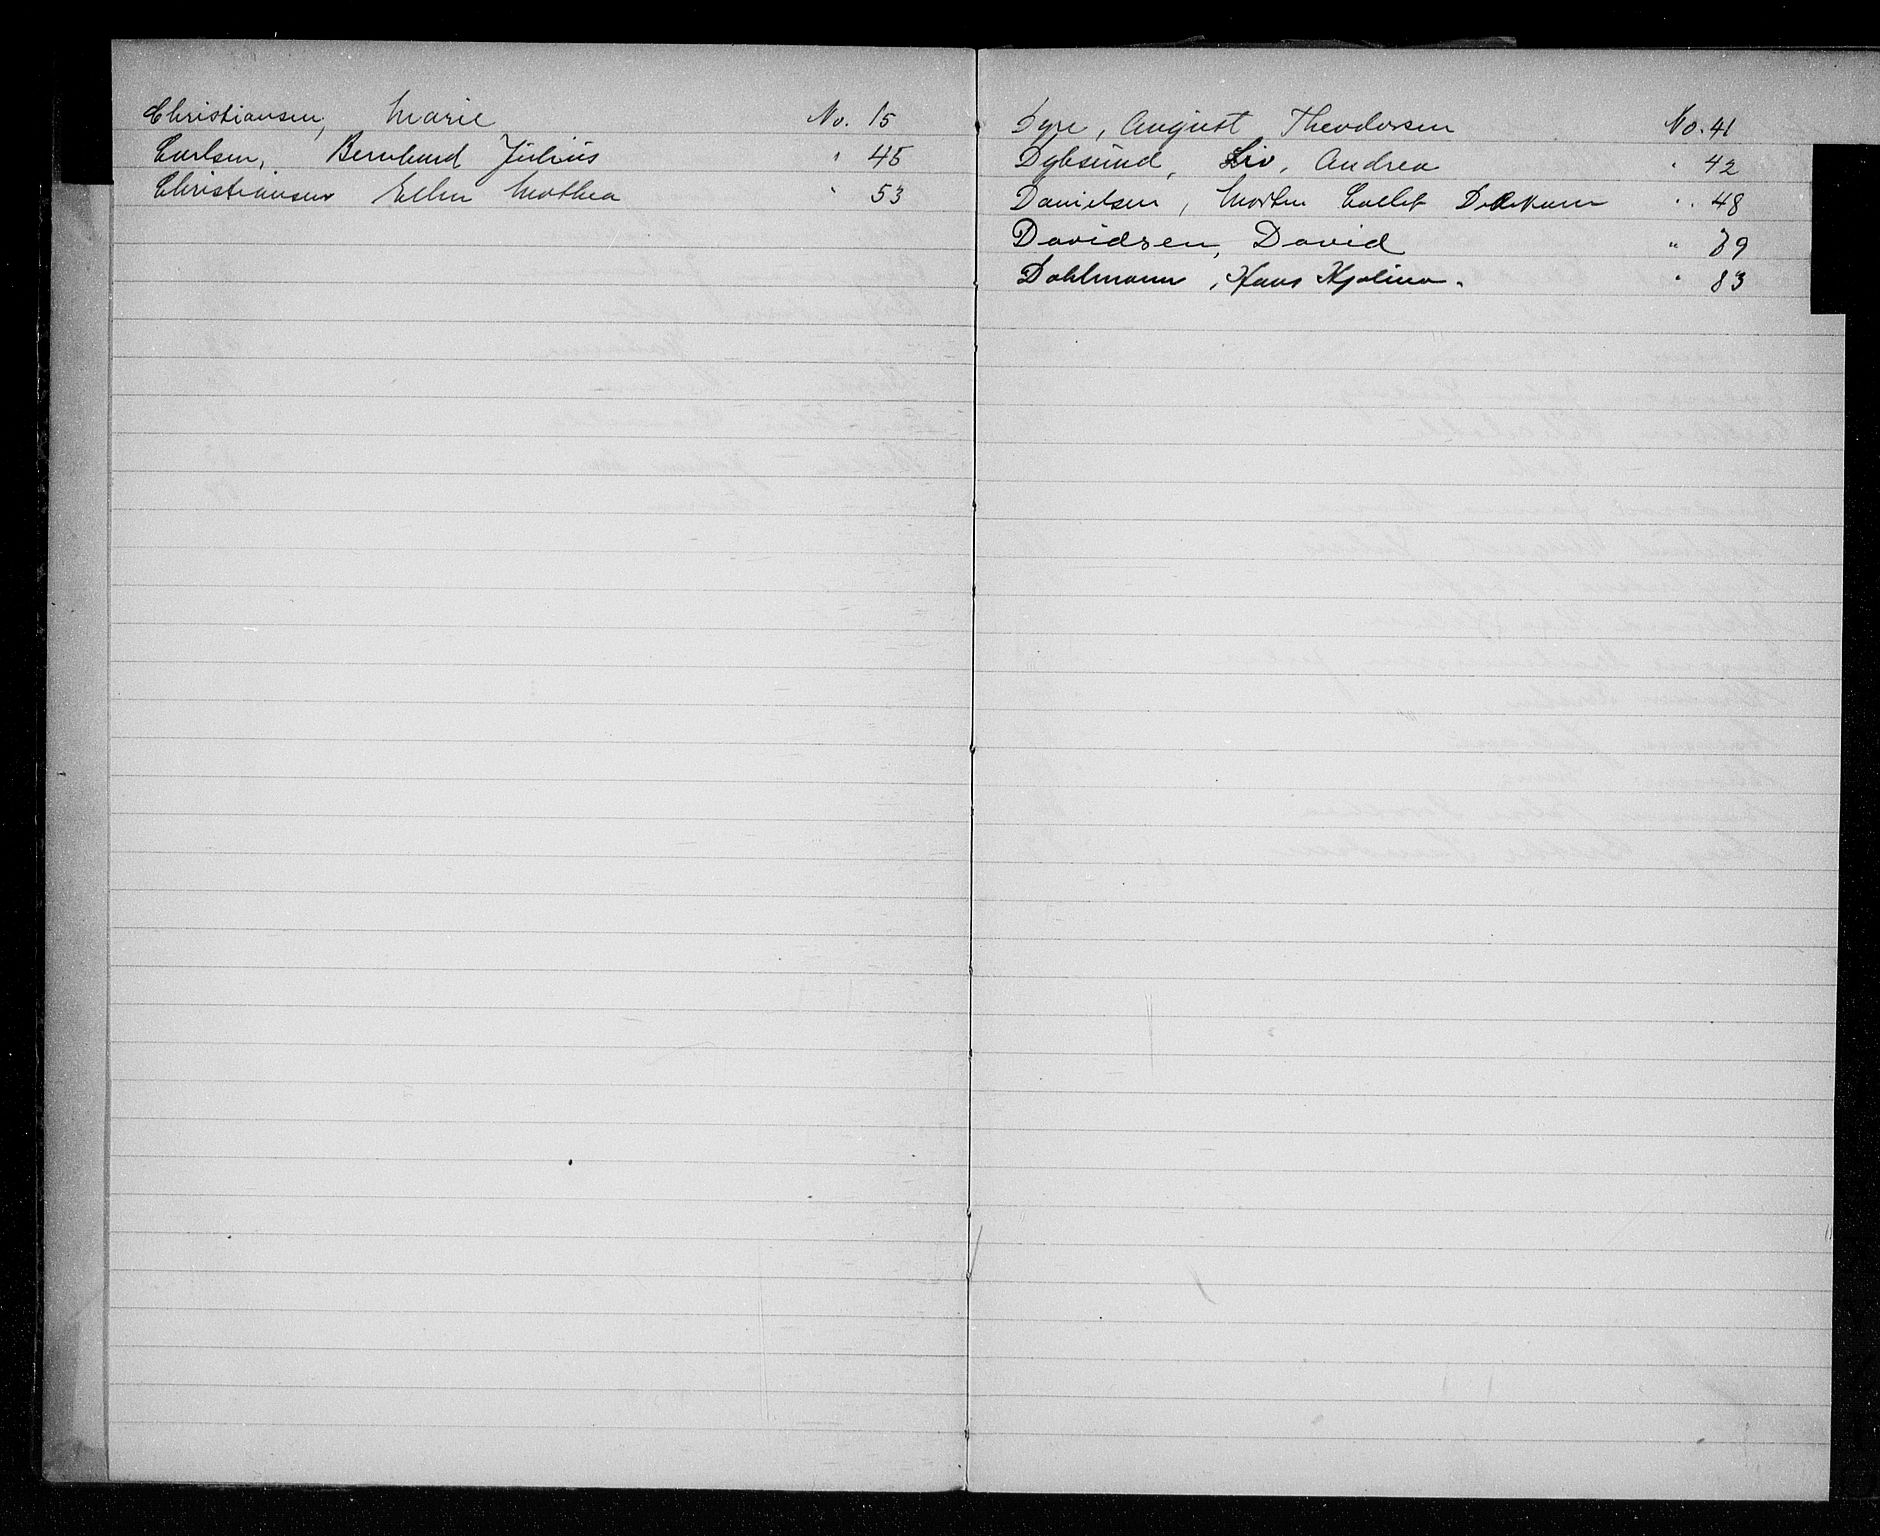 Christiansen, Marie No. 15
Carlsen, Bernhard Julius " 45
Christiansen Ellen Mathea " 53
Dyre, August Theodorsen No. 41
Dybsund, Liv, Andrea " 42
Danielsen, Morten Collet " 48
Davidsen, David " 79
Dahlmann, Hans Hjalmar. " 83